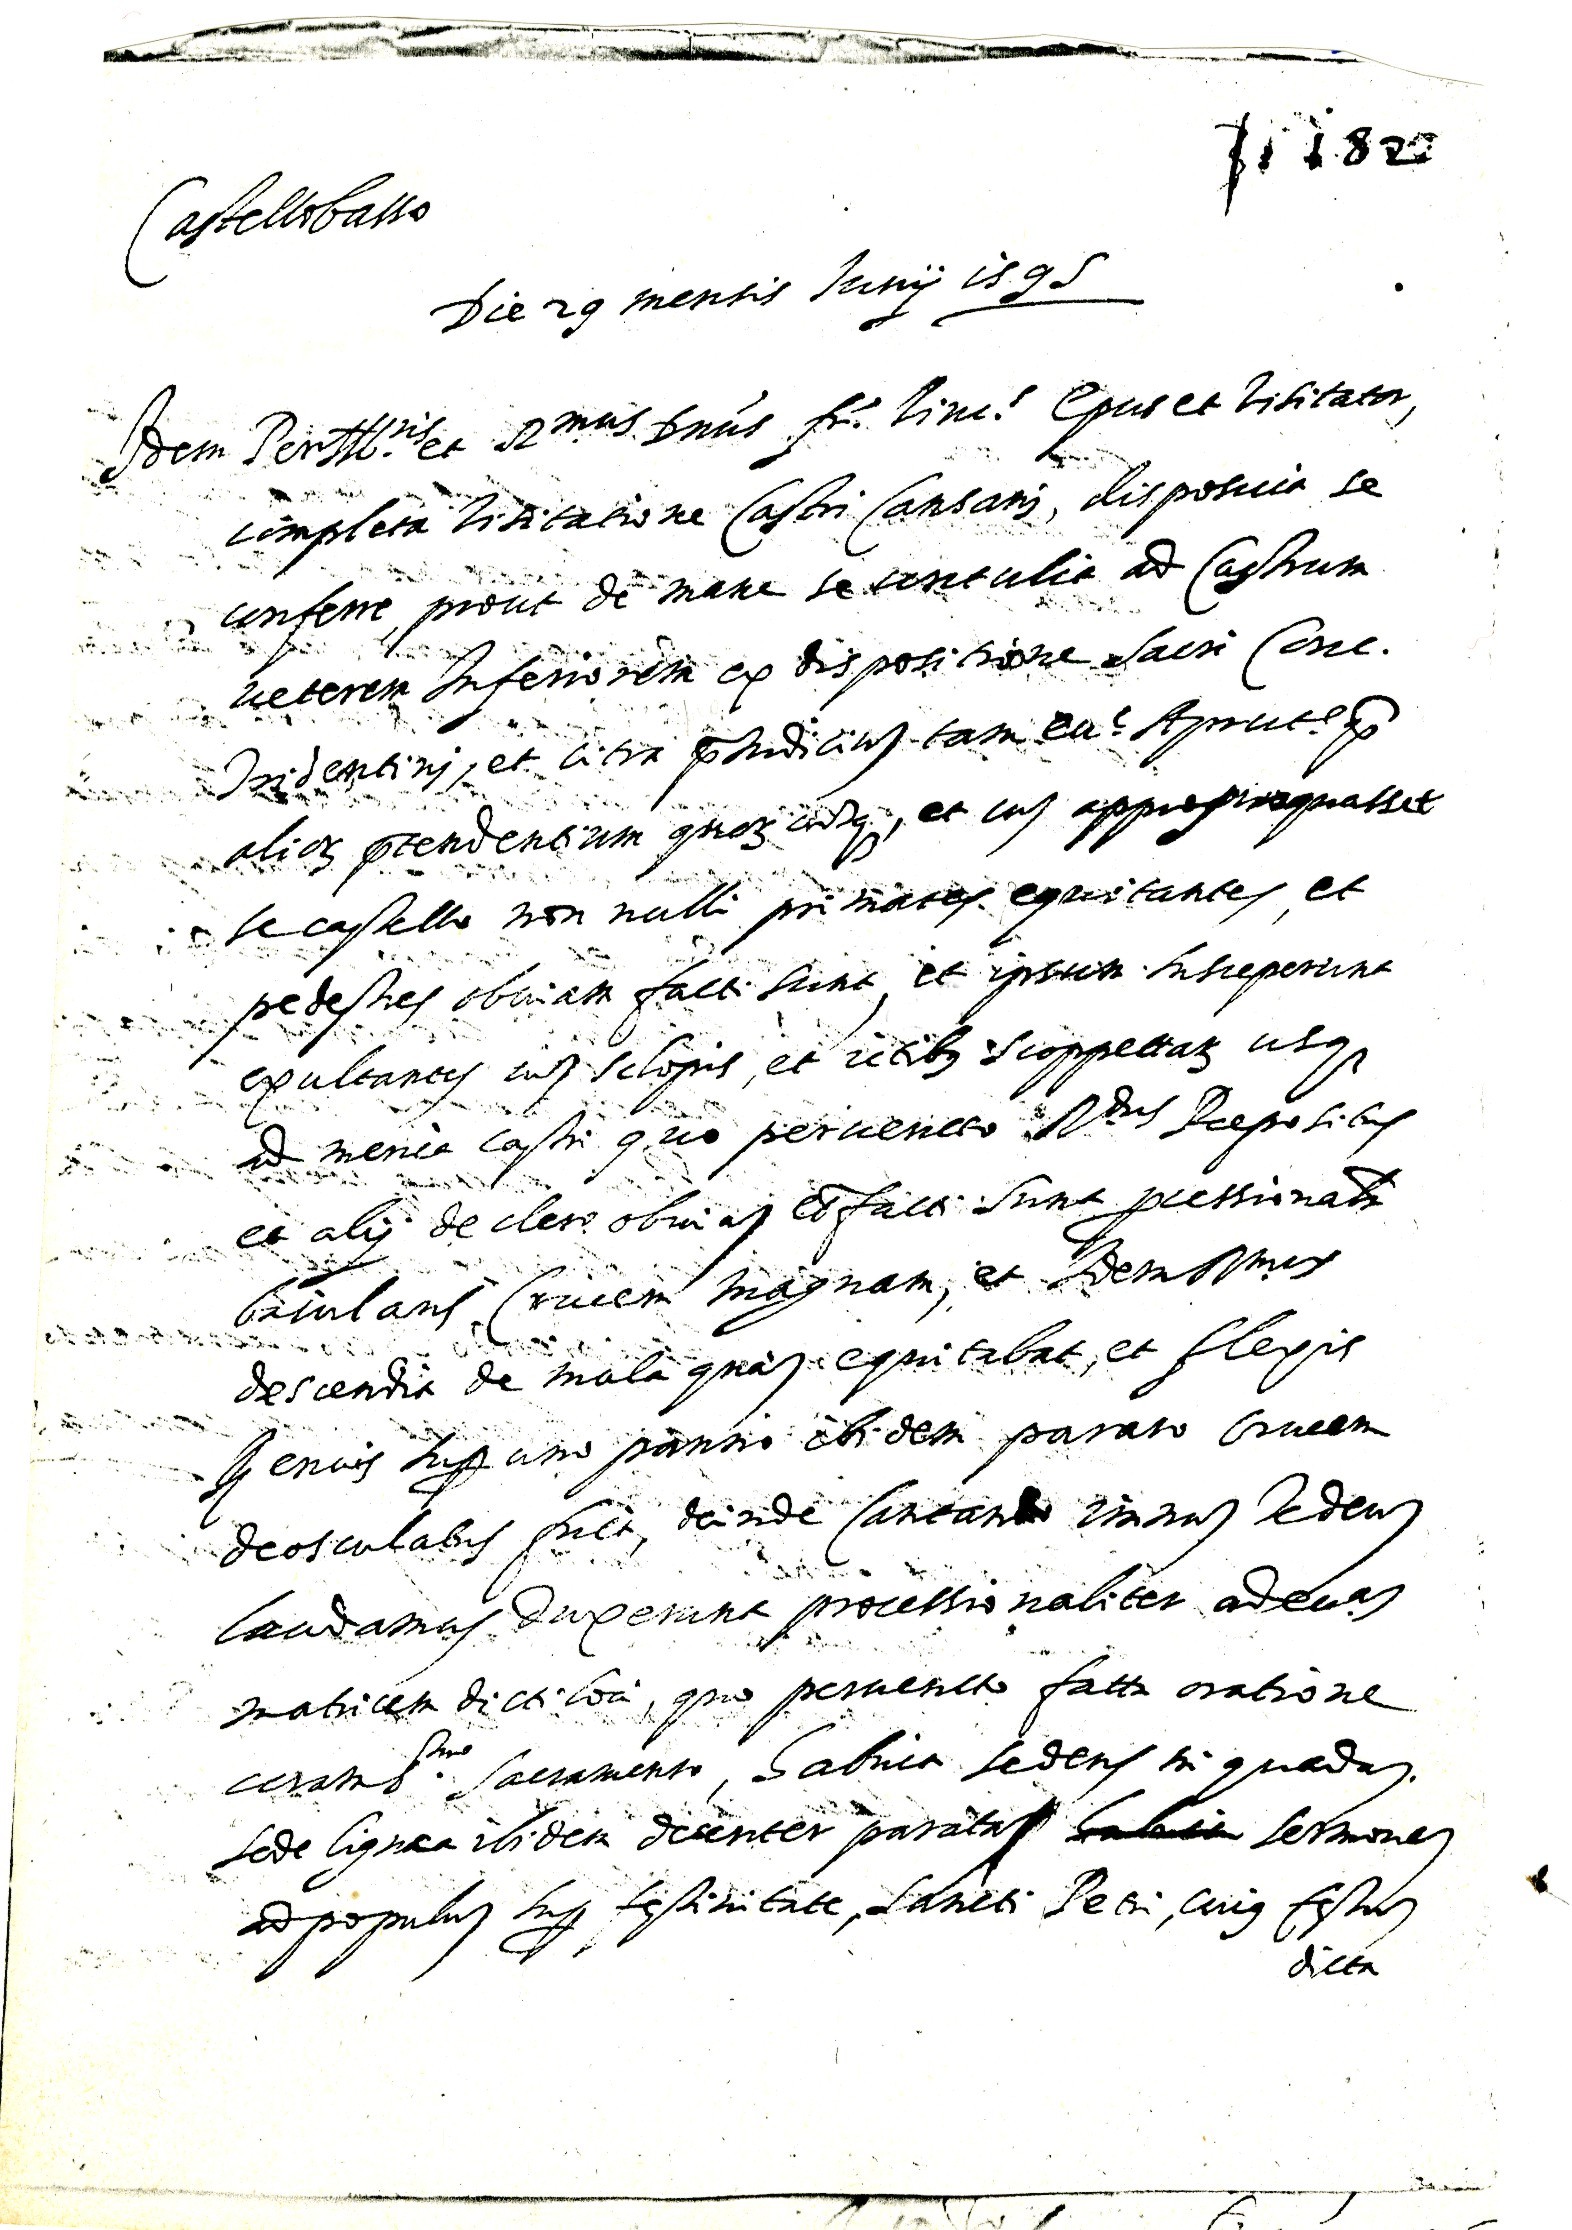 182
Castellobasso
Die 29 mensis Junij 1595
Idem Per Ill.ris et R.mus Dnús fr. Vinc.s Epus et Visitator,
completa visitatione Castri Cansani, disposuit se
conferre, prout de mane se contulit ad Castrum
ueterem Inferiorem ex dispositione Sacri Conc.
Tridentini, et citra p̄Iudiciuʒ tam Ecc.e Aprut.e q̄
alioꝝ p̄tendentium quoꝝcūqꝫ, et cuʒ appropinquasset
se castello non nulli primates equitantes, et
pedestres obuiam facti sunt, et ipsum susceperunt
exultantes cuʒ sclopis, et ictibꝫ scoppettaꝝ usqꝫ
ad menia castri quo peruento R.dus Prepositus
et alij de clero obuiaʒ eō facti sunt pcessionalr̄
baiulans Crucem magnam, et Idem Rmus
descendit de mula quaʒ equitabat, et flexis
genuis suꝑ uno panno ibidem parato Crucem
deosculatus fuit, deinde Cantando imnuʒ Te deuʒ
laudamus duxerunt processionaliter ad ecc.aʒ
matricem dicti loci, quo peruento facta oratione
coram S.smo Sacramento, habuit sedens in quadaʒ
sede lignea ibidem decenter parata habuit sermoneʒ
ad populuʒ suꝑ festiuitate, Sancti Petri, cuiꝰ festuʒ
dicta